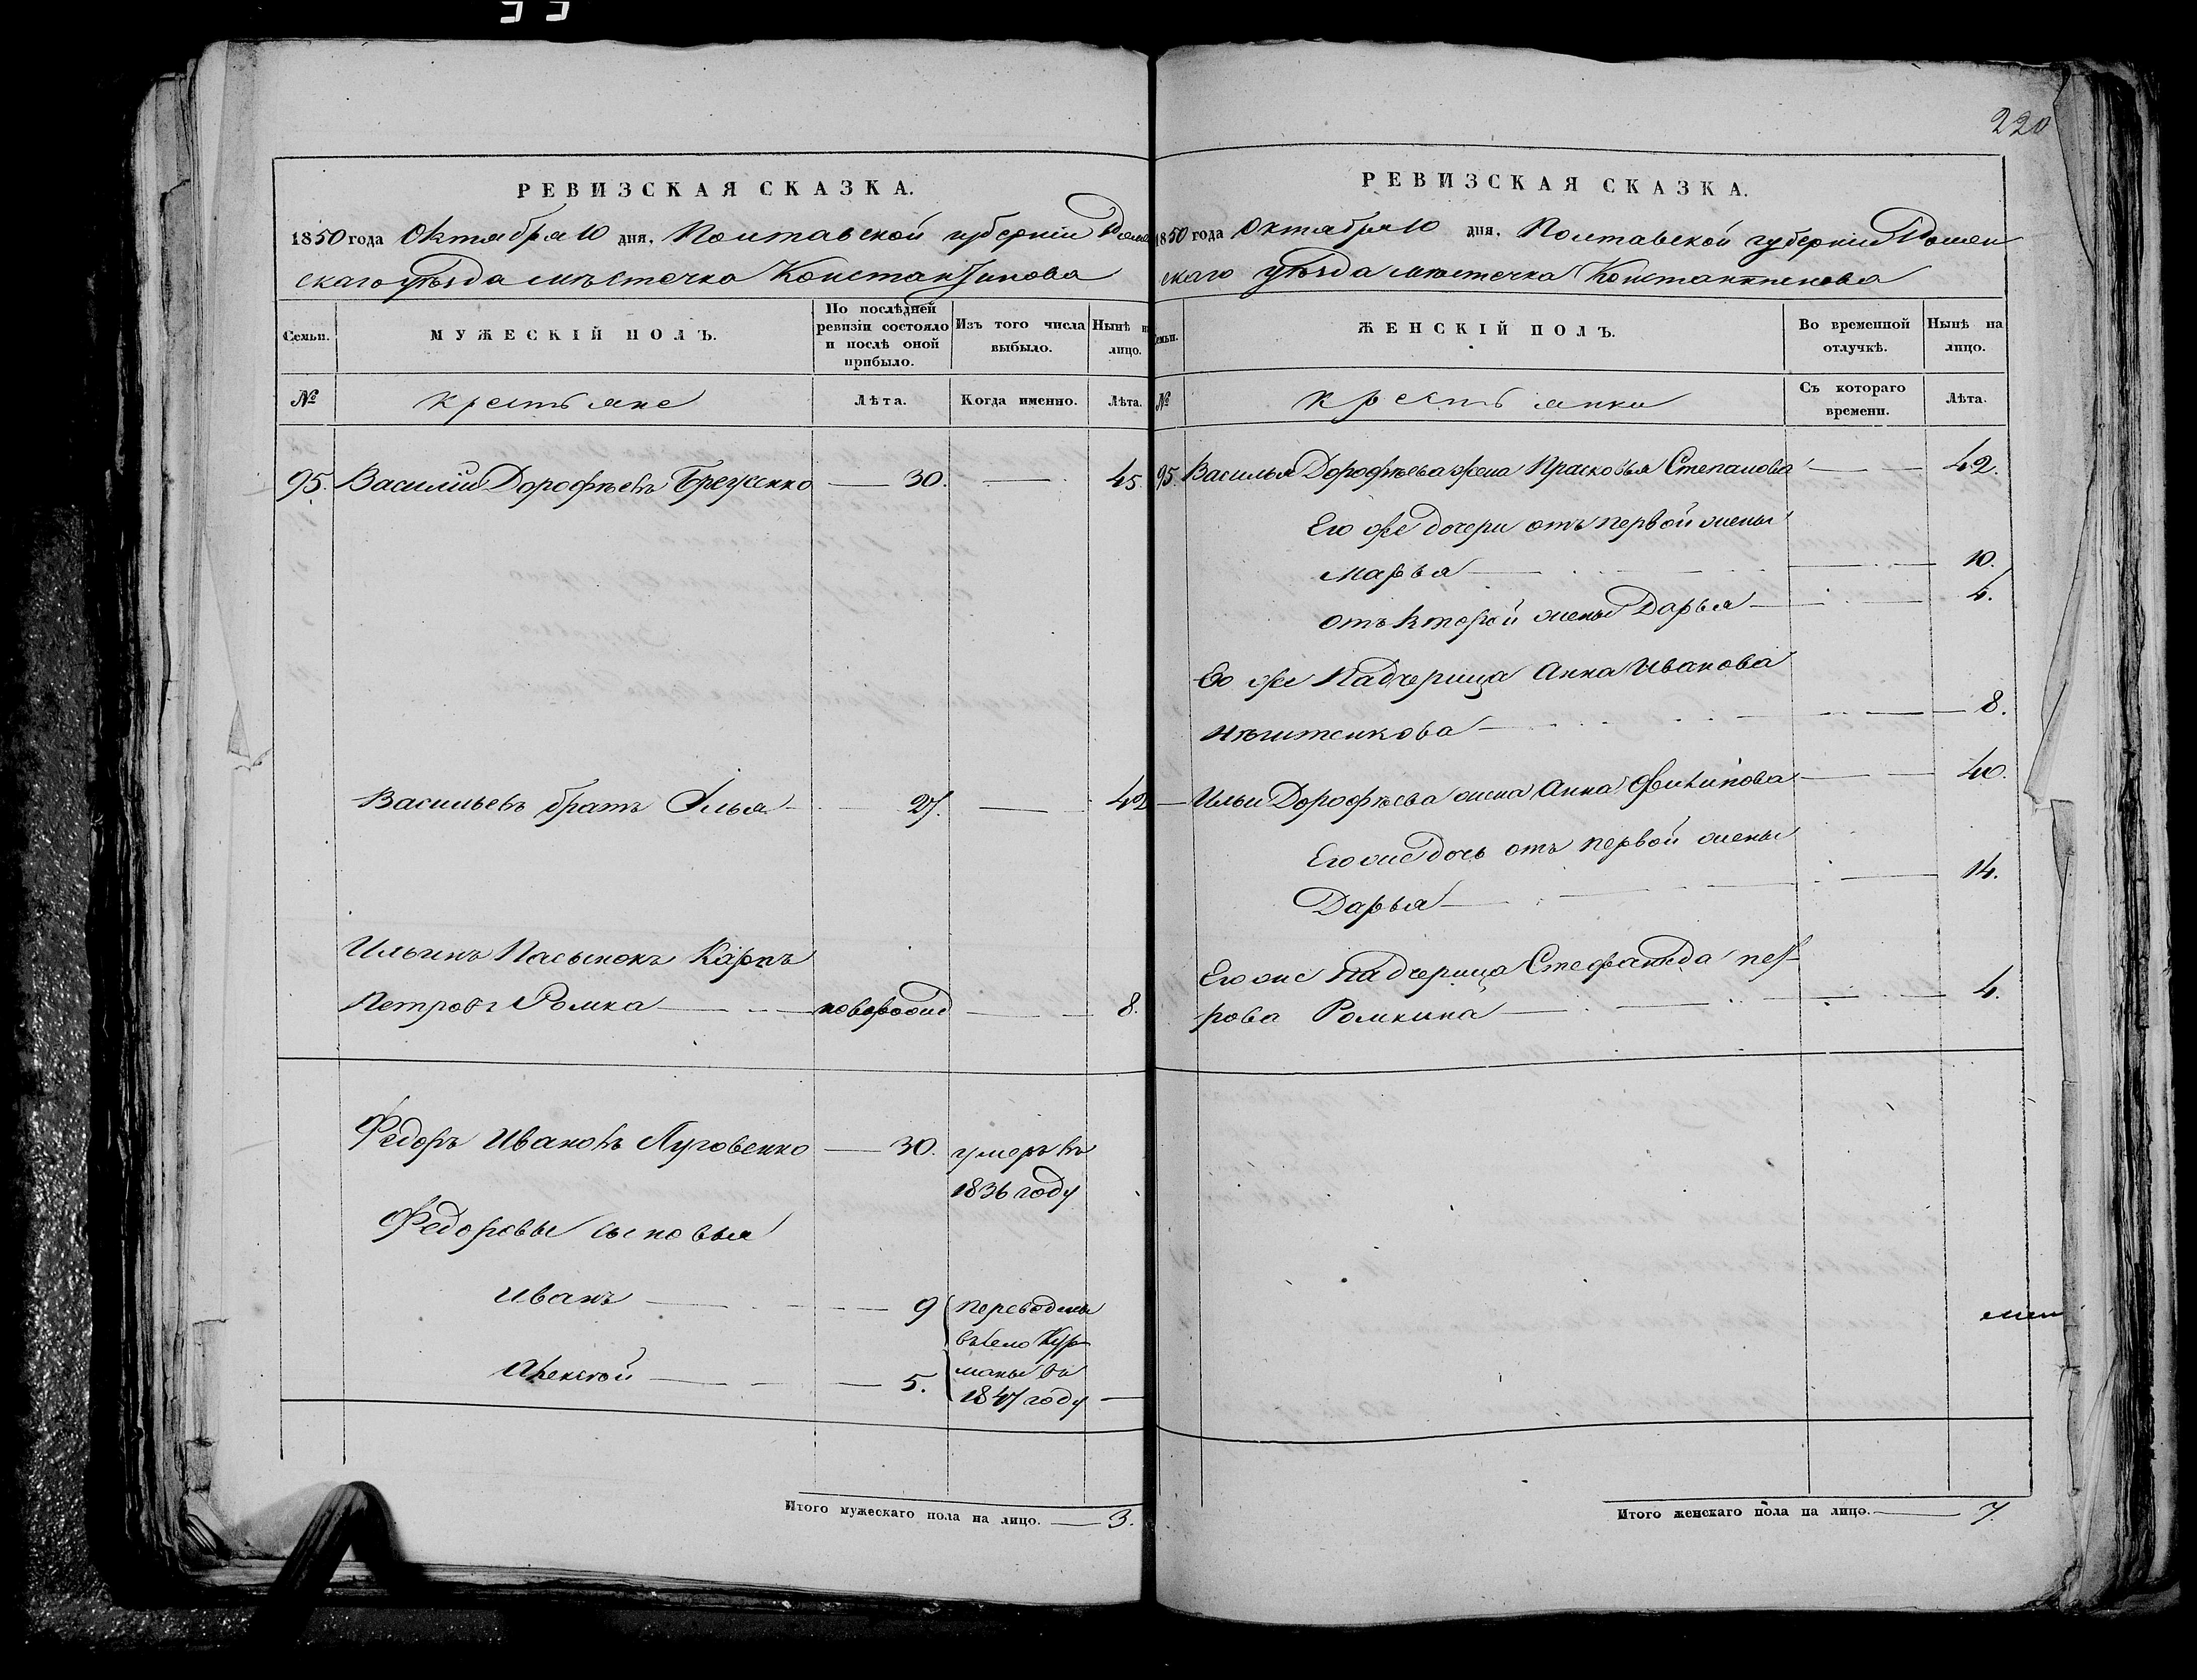 220
РЕВИЗСКАЯ СКАЗКА.
1850 года Октября 10 дня, Полтавской губерніи Ромен
скаго уѣзда мѣстечка Константинова
Семьи.
МУЖЕСКІЙ ПОЛЪ.
По послѣдней
ревизіи состояло
и послѣ оной
прибыло.
Изъ того числа
выбыло.
Нынѣ на
лицо.
№
крестьяне
Лѣта.
Когда именно.
Лѣта.
95. Василій Дорофѣевъ Брезуненко — 30. — 45.
Васильевъ братъ Илья — 27. — 42
Ильинъ Пасынокъ Карпъ
Петровъ Ромка — новорожд — 8.
Федоръ Ивановъ Луговенко — 30. умеръ въ
1836 году
Федоровы сыновья
Иванъ — 9 переведены
въ село Кур
маны въ
Алексѣй — 5. 1847 году —
Итого мужескаго пола на лицо. — 3.
РЕВИЗСКАЯ СКАЗКА.
1850 года Октября 10 дня, Полтавской губерніи Ромен
скаго уѣзда мѣстечка Константинова
Семьи.
ЖЕНСКІЙ ПОЛЪ.
Во временной
отлучкѣ.
Нынѣ на
лицо.
№
крестьянки
Съ котораго
времени.
Лѣта.
95. Василья Дорофѣева жена Прасковья Степанова — 42.
Его же дочери отъ первой жены
Марья — 10.
отъ второй жены Дарья — 4.
Его же Падчерица Анна Иванова
— 8.
Ильи Дорофѣева жена Анна Филипова — 40.
Его же дочь отъ первой жены
Дарья — 14.
Его же падчерица Стефанида пет
рова Ромкина — 4.
Итого женскаго пола на лицо. — 7.